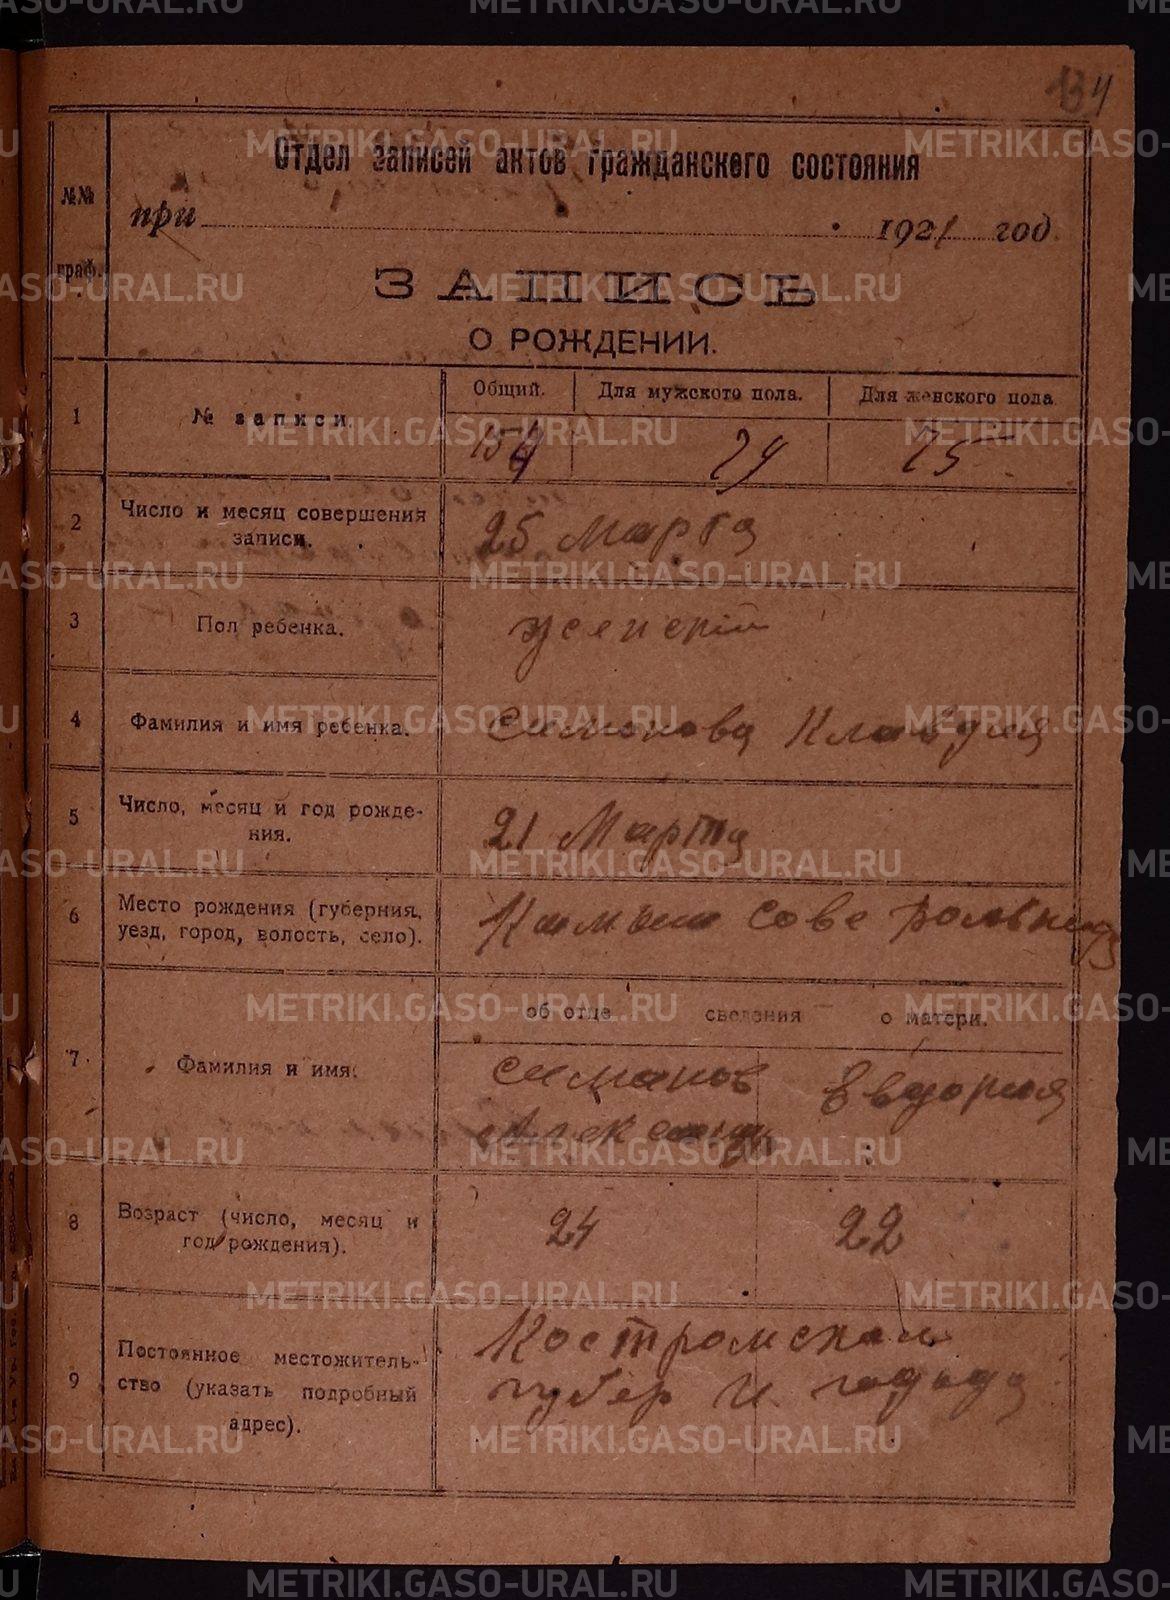 134
Отдел записей актов гражданского состояния
№№ граф.
при 1921 год.
ЗАПИСЬ
О РОЖДЕНИИ.
1 № записи. Общий. Для мужского пола. Для женского пола
154 79 75
2 Число и месяц совершения записи. 25 Марта
3 Пол ребенка. женский
4 Фамилия и имя ребенка. Симонова Клавдия
5 Число, месяц и год рождения. 21 Марта
6 Место рождения (губерния, уезд, город, волость, село). сове
об отце сведения о матери.
7 Фамилия и имя. Симонов
8 Возраст (число, месяц и год рождения). 24 22
9 Постоянное местожительство (указать подробный адрес). Костромская
губер и города
METRIKI.GASO-URAL.RU